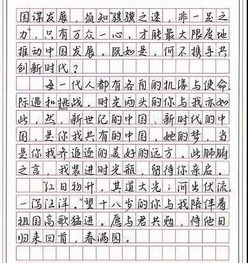 国谋发展,须知骐骥之速,非一足之
力,只有万众一心,才能最大限度地
推动中国发展。既如是,何不携手共
创新时代?
每一代人都有各自的机遇与使命、
际遇和挑战。时光两头的你与我亦如
此。然,新世纪的中国,新时代的中
国,是你我共有的中国,她的梦,当
是你我齐追逐的美好的远方,此肺腑
之言,我装进时光瓶,留待你亲启。
"红日初升,其道大光;河出伏流,
一泻汪洋。"望十八岁的你与我陪伴着
祖国高歌猛进。愿与君共勉,待他日
归来回首,春满园。